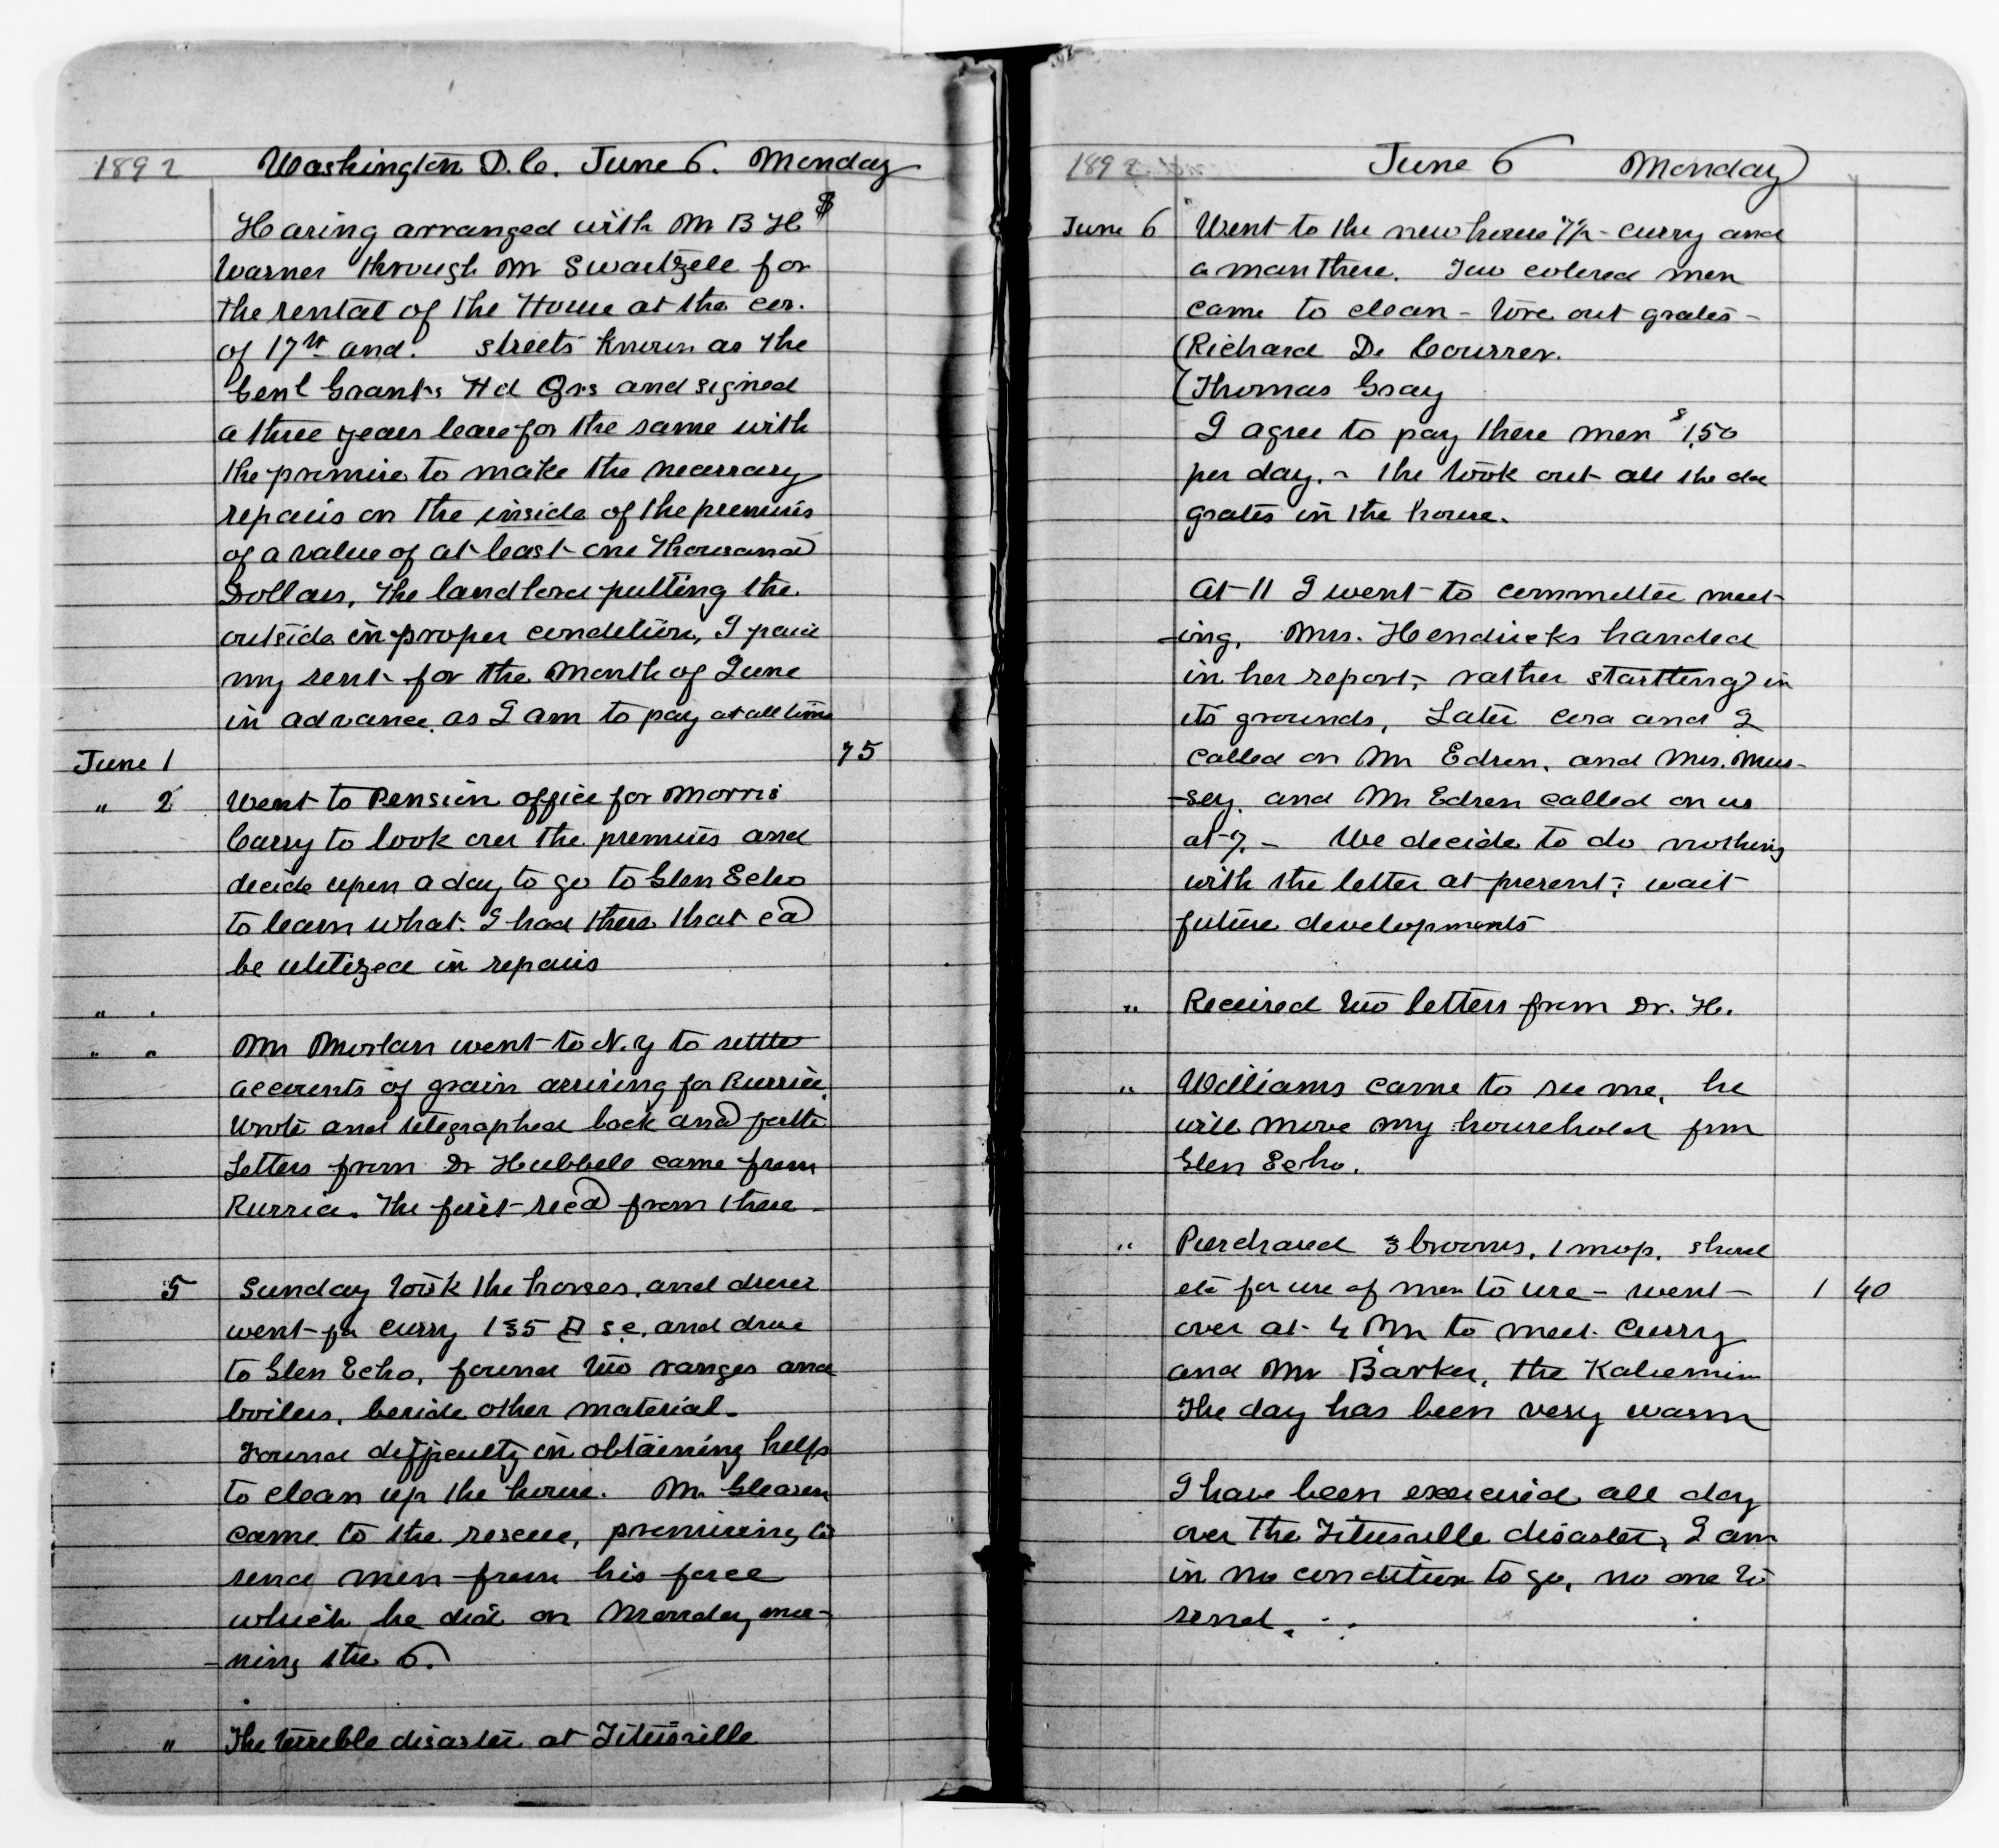 1892 Washington D.C. June 6. Monday
$
Having arranged with Mr B H
Warner through Mr Swartzell for
the rental of the House at the cor.
of 17th and. streets known as the
Genl Grants Hd Qrs and signed
a three years lease for the same with
the promise to make the necessary
repairs on the inside of the premises
of a value of at least one thousand
Dollars, the landlord putting the
outside in proper condition, I paid
my rent for the Month of June
in advance as I am to pay at all times
June 1 75
" 2 Went to Pension office for Morris
Curry to look over the premises and
decide upon a day to go to Glen Echo
to learn what I had there that cd
be utilized in repairs
" .
" " Mr Morlan went to N.Y to settle
accounts of grain arriving for Russia,
wrote and telegraphed back and forth
Letters from Dr Hubbell came from
Russia. The first recd from there
5 Sunday took the horses, and
went for Curry 135 D s.e. and drove
to Glen Echo, found two ranges and
boilers, beside other material.
Found difficulty in obtaining help
to clean up the house. Mr Gleason
came to the rescue, promising to
send men from his force
which he did on Monday mor-
-ning the 6.
" The terrible disaster at Titusville
1892 June 6 Monday
June 6 Went to the new house - Curry and
a man there. Two colored men
came to clean - tore out grates -
(Richard De Courser.
(Thomas Gray
I agree to pay these men $1,50
per day. - the took out all the
grates in the house.
At 11 I went to committee meet-
-ing, Mrs. Hendricks handed
in her report, rather startling in
its grounds, Later Cora and I
called on Mr Edson, and Mrs. Mus-
-sey. and Mr Edson called on us
at 7. - We decide to do nothing
with the letter at present; wait
future developments
" Received two letters from Dr. H.
" Williams came to see me, he
will move my household from
Glen Echo.
" Purchased 3 brooms, 1 mop, shovel
etc for use of men to use - went - 1 40
over at 4 Pm to meet Curry
and Mr Barker, the
The day has been very warm
I have been exercised all day
over the Titusville disaster, I am
in no condition to go, no one to
send.